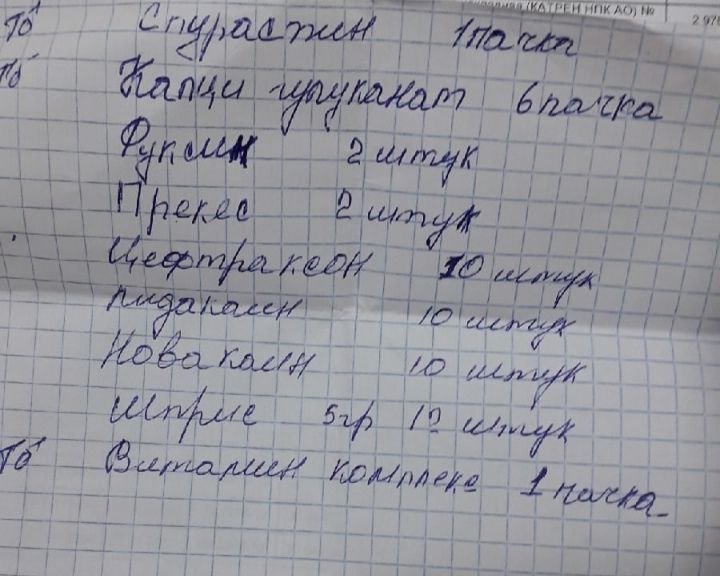 кладная (КАТРЕН НПК АО) №
2 976
Тб Спурастин 1 пачка
Тб Капци гулуканат 6 пачка
Руксин 2 штук
Прекес 2 штук
Цефтраксон 10 штук
лидакаин 10 штук
Новакаин 10 штук
Шприс 5гр 10 штук
Тб Витамин комплекс 1 пачка